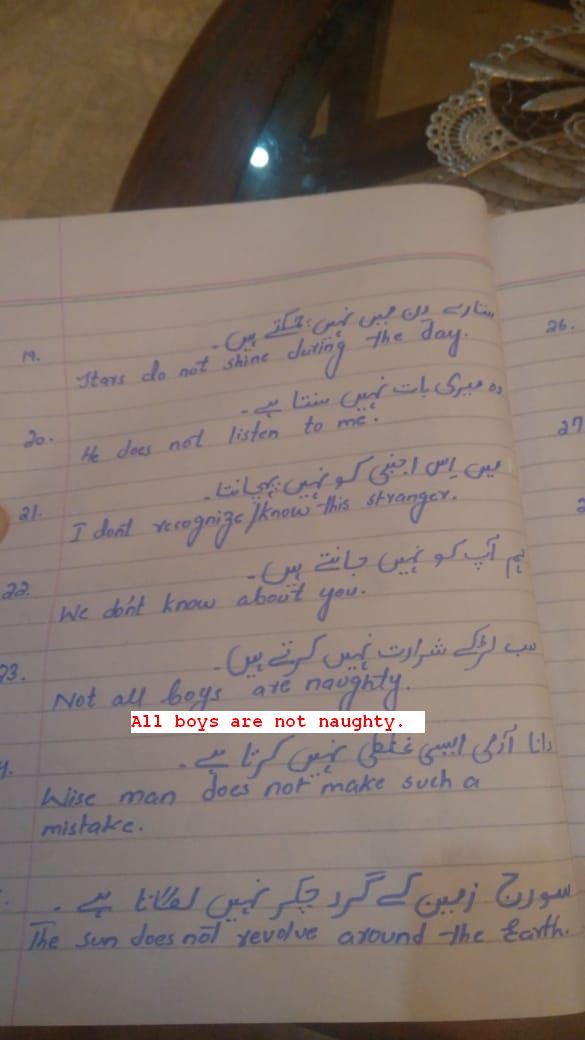 ستارے دن میں نہیں چمکتے ہیں۔
19. Stars do not shine during the day.
وہ میری بات نہیں سنتا ہے۔
20. He does not listen to me.
میں اِس اجنبی کو نہیں پہچانتا۔
21. I dont recognize/know this stranger.
ہم آپ کو نہیں جانتے ہیں۔
22. We don't know about you.
سب لڑکے شرارت نہیں کرتے ہیں۔
23. Not all boys are naughty.
All boys are not naughty.
دانا آدمی ایسی غلطی نہیں کرتا ہے۔
Wise man does not make such a
mistake.
سورج زمین کے گرد چکر نہیں لگاتا ہے۔
The sun does not revolve around the Earth.
26.
27